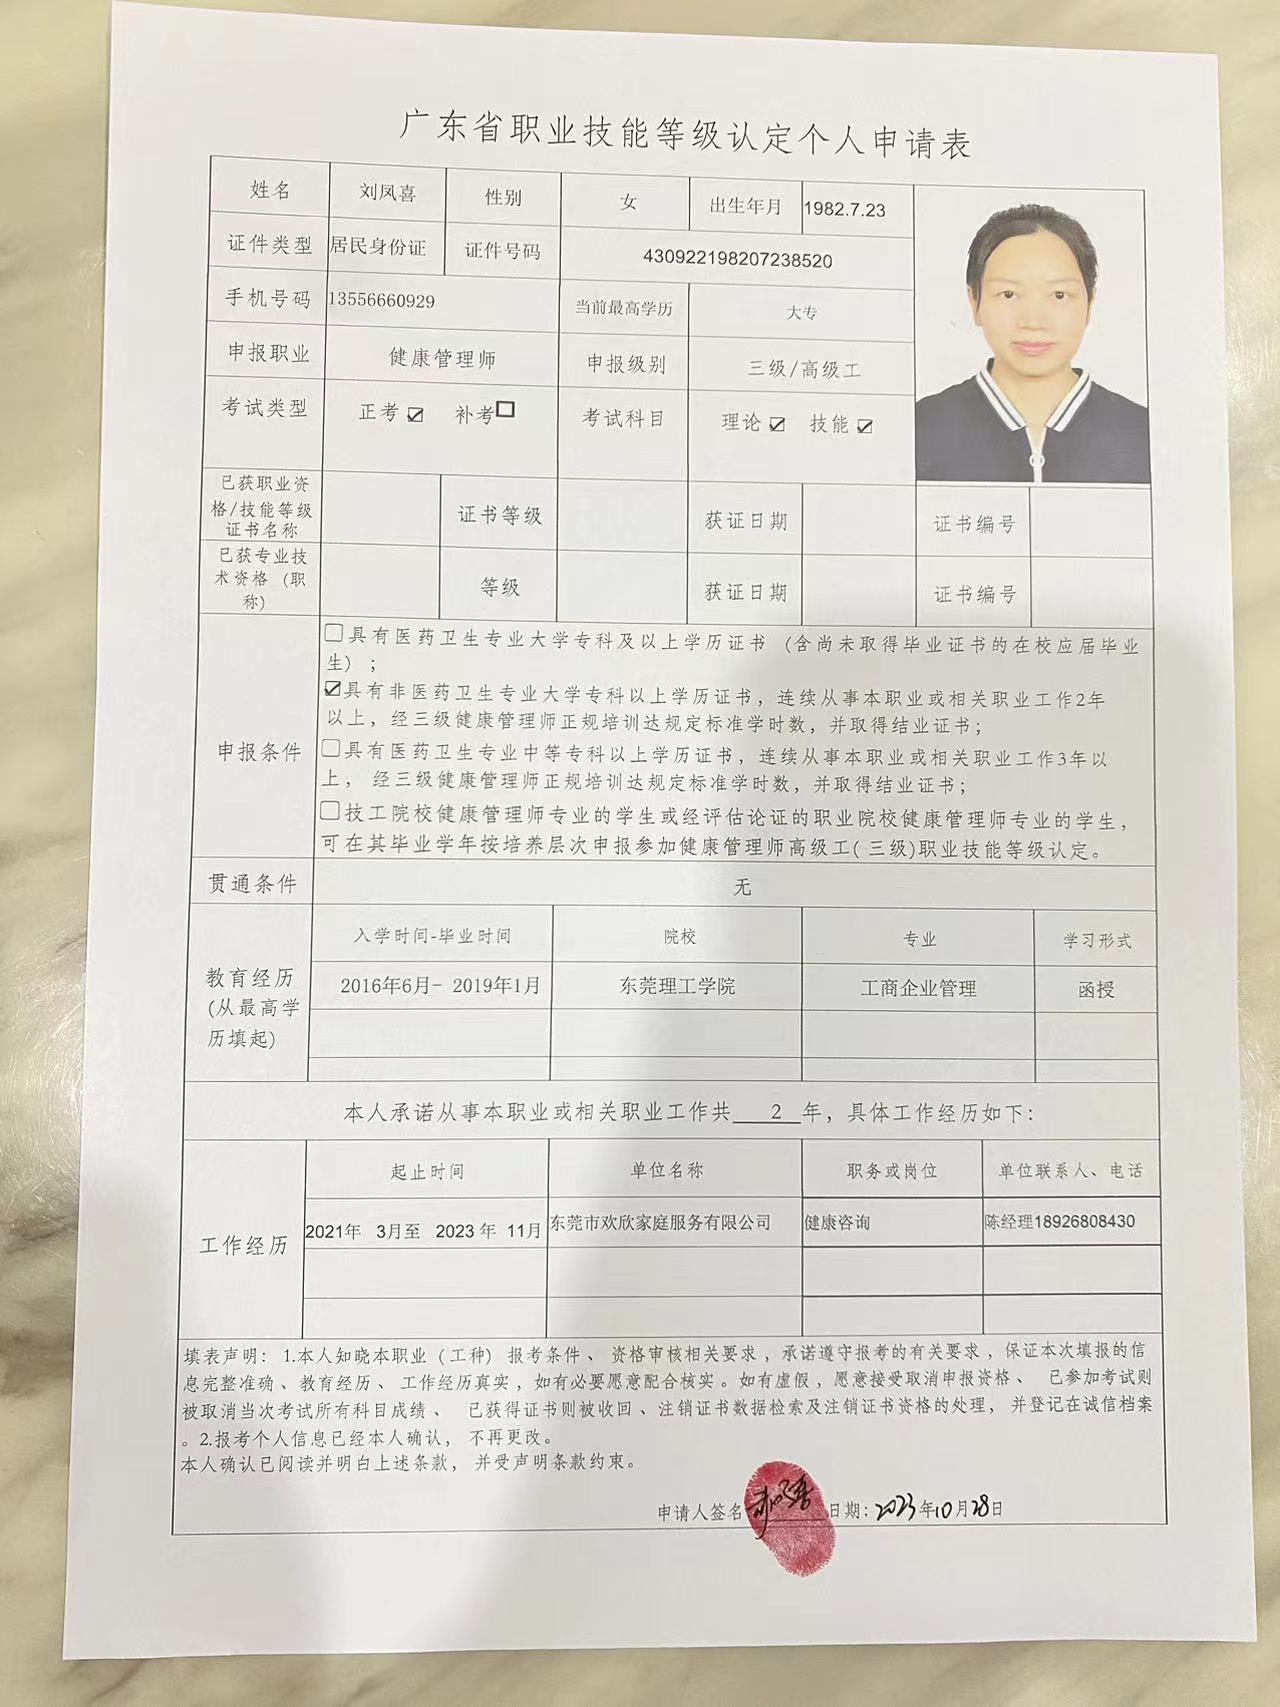 广东省职业技能等级认定个人申请表
姓名 刘凤喜 性别 女 出生年月 1982.7.23
证件类型 居民身份证 证件号码 430922198207238520
手机号码 13556660929 当前最高学历 大专
申报职业 健康管理师 申报级别 三级/高级工
考试类型 正考☑ 补考☐ 考试科目 理论☑ 技能☑
已获职业资
格/技能等级
证书名称
证书等级 获证日期 证书编号
已获专业技
术资格 (职
称)
等级 获证日期 证书编号
申报条件
☐具有医药卫生专业大学专科及以上学历证书 (含尚未取得毕业证书的在校应届毕业
生) ;
☑具有非医药卫生专业大学专科以上学历证书，连续从事本职业或相关职业工作2年
以上，经三级健康管理师正规培训达规定标准学时数，并取得结业证书；
☐具有医药卫生专业中等专科以上学历证书，连续从事本职业或相关职业工作3年以
上， 经三级健康管理师正规培训达规定标准学时数，并取得结业证书；
☐技工院校健康管理师专业的学生或经评估论证的职业院校健康管理师专业的学生，
可在其毕业学年按培养层次申报参加健康管理师高级工( 三级)职业技能等级认定。
贯通条件 无
教育经历
(从最高学
历填起)
入学时间-毕业时间 院校 专业 学习形式
2016年6月- 2019年1月 东莞理工学院 工商企业管理 函授
本人承诺从事本职业或相关职业工作共 2 年，具体工作经历如下：
工作经历
起止时间 单位名称 职务或岗位 单位联系人、电话
2021年 3月至 2023年 11月 东莞市欢欣家庭服务有限公司 健康咨询 陈经理18926808430
填表声明： 1.本人知晓本职业 (工种) 报考条件、 资格审核相关要求，承诺遵守报考的有关要求，保证本次填报的信
息完整准确、教育经历、 工作经历真实，如有必要愿意配合核实。如有虚假，愿意接受取消申报资格、 已参加考试则
被取消当次考试所有科目成绩、 已获得证书则被收回、注销证书数据检索及注销证书资格的处理，并登记在诚信档案
。2.报考个人信息已经本人确认， 不再更改。
本人确认已阅读并明白上述条款， 并受声明条款约束。
申请人签名 刘凤喜 日期：2023年10月28日